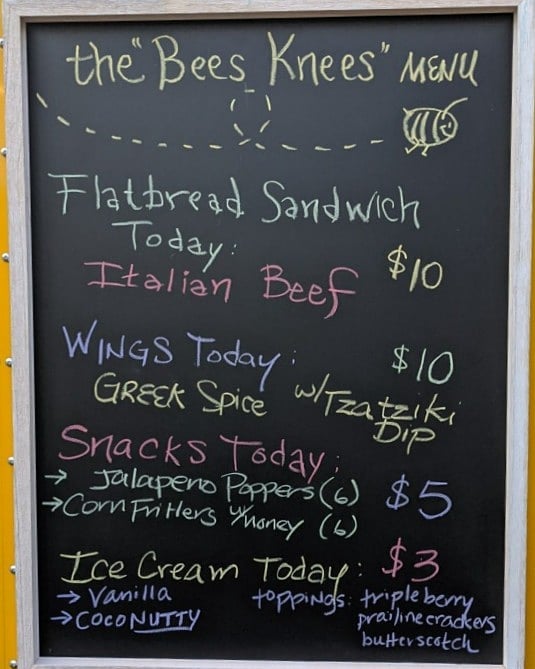 the "Bees Knees" MENU
Flatbread Sandwich
Today:
Italian Beef $10
Wings Today: $10
Greek Spice w/Tzatziki
Dip
Snacks Today:
→ Jalapeno Poppers (6) $5
→ Corn Fritters w/honey (6)
Ice Cream Today: $3
→ Vanilla toppings: tripleberry
→ CocoNUTTY prailine crackers
butterscotch